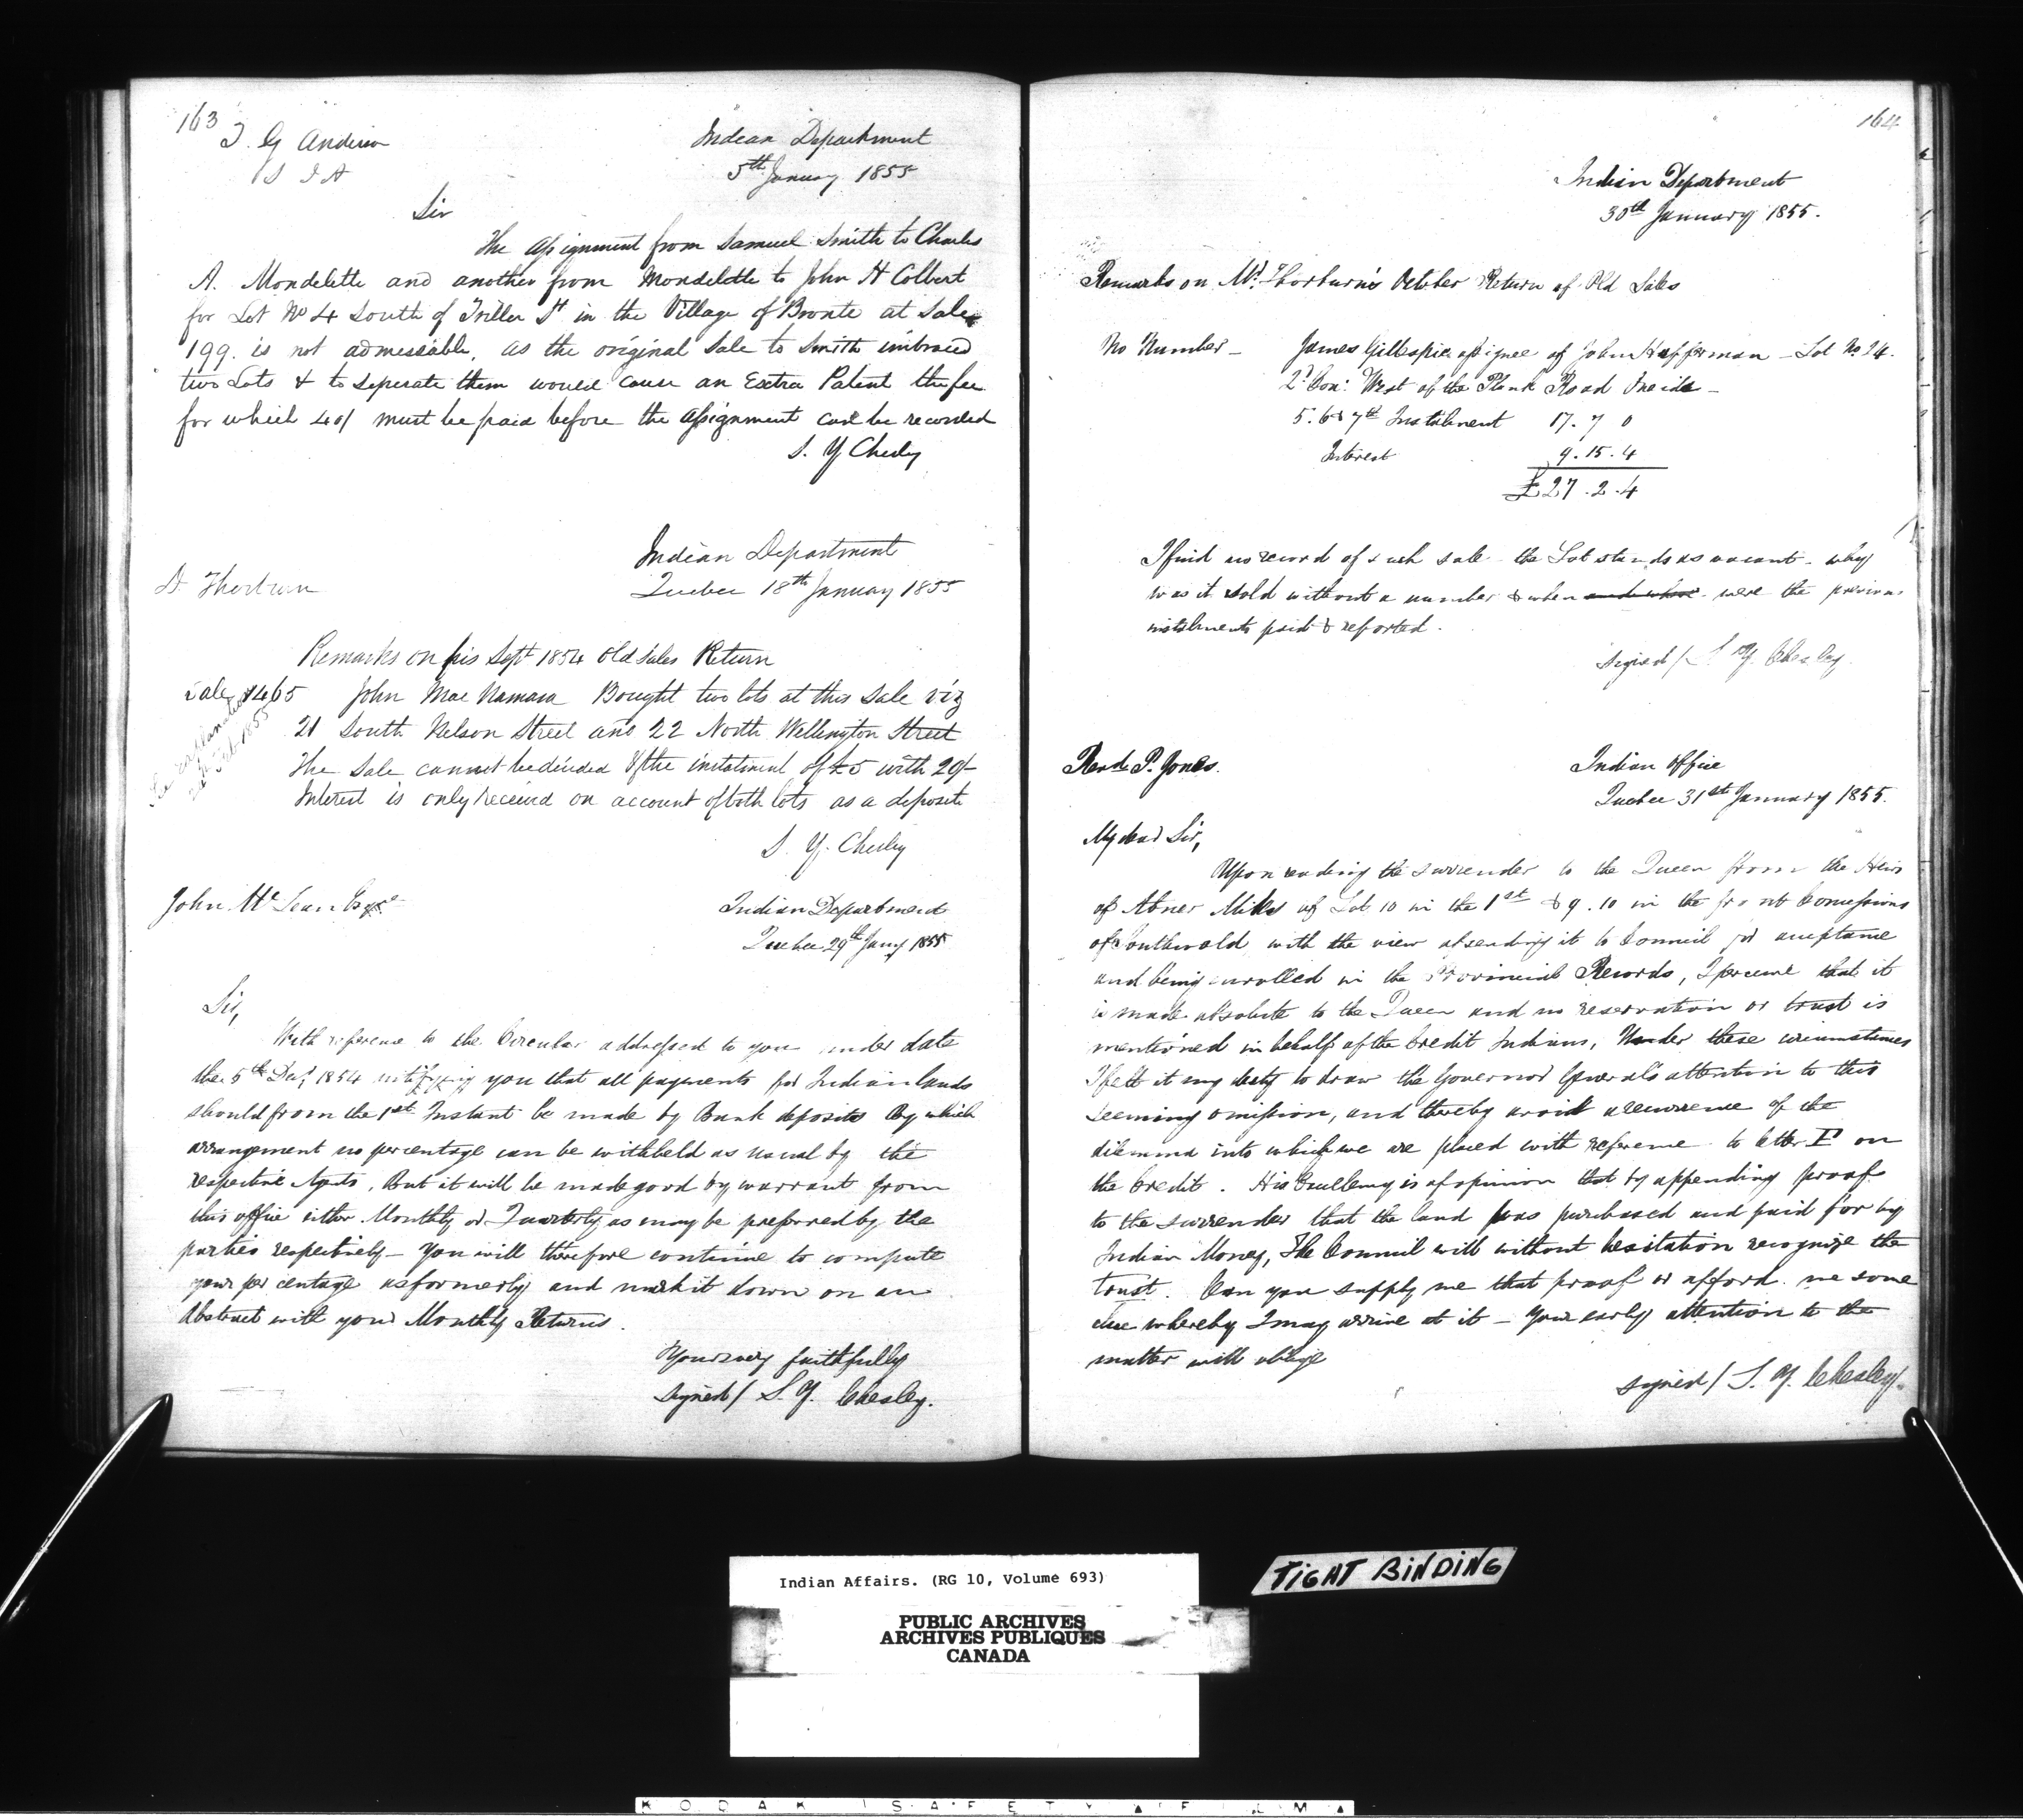 163
T. G Anderson
S I A
Indian Department
5th January 1855
Sir
The Assignment from Samuel Smith to Charles
A. Mondelette and another from Mondelette to John H Colbert
for Lot No 4 South of Triller St in the Village of Bronte at Sale
199. is not admessable, as the original Sale to Smith imbraced
two Lots & to seperate them would cause an Extra Patent the fee
for which 40/ must be paid before the Assignment can be recorded
S. Y Chesley
Indian Department
Quebec 18th January 1855
D. Thorburn
Remarks on his Sept 1854 Old Sales Return
Sale 1465 John Mac Namara Bought two lots at this Sale viz
21 South Nelson Street and 22 North Wellington Street
The Sale cannot be divided & the instalment of £5 with 29/-
Interest is only received on account of both lots as a deposite
See
Feb 1855
S. Y. Chesley
John McLean Esqre
Indian Department
Quebec 29th Jany 1855
Sir,
With reference to the Circular addressed to you under date
the 5th Decr 1854 notifying you that all payments for Indian lands
should from the 1st Instant be made by Bank deposits By which
arrangement no percentage can be withheld as usual by the
respective Agents, But it will be made good by warrant from
this office either Monthly or Quarterly as may be preferred by the
parties respectively – You will therefore continue to compute
your per centage as formerly and mark it down on an
Abstract with your Monthly Returns.
Yours very faithfully
signed/ S. Y. Chesley.
164
Indian Department
30th January 1855.
Remarks on Mr Thorburn's October Return of Old Sales
No Number – James Gillespie assignee of John Hefferman – Lot No 24.
2d Con: West of the Plank Road Oneida –
5. 6 & 7th Instalment 17. 7 0
Interest 9. 15. 4
£27. 2. 4
I find no record of such sale – the Lot stands as vacant – why
was it sold without a number & when and where were the previous
instalments paid & reported.
signed/ S. Y. Chesley.
Revd. P. Jones.
Indian Office
Quebec 31st January 1855.
My dear Sir,
Upon reading the surrender to the Queen from the Heirs
of Abner Miles of Lot 10 in the 1st & 9. 10 in the front Concessions
of Southwold with the view of sending it to Council for acceptance
and being enrolled in the Provincial Records, I perceive that it
is made absolute to the Queen and no reservation or trust is
mentioned in behalf of the Credit Indians, Under these circumstances
I felt it my duty to draw the Governor General's attention to this
seeming omission, and thereby avoid a recurrence of the
dilemma into which we are placed with reference to letter F on
the Credit. His Excellency is of opinion that by appending proof
to the surrender that the land was purchased and paid for by
Indian Money, The Council will without hesitation recognize the
trust. Can you supply me that proof or afford me some
clue whereby I may arrive at it – Your early attention to the
matter will oblige
signed/ S. Y. Chesley.
Indian Affairs. (RG 10, Volume 693)
PUBLIC ARCHIVES
ARCHIVES PUBLIQUES
CANADA
TIGHT BINDING
KODAK SAFETY FILM